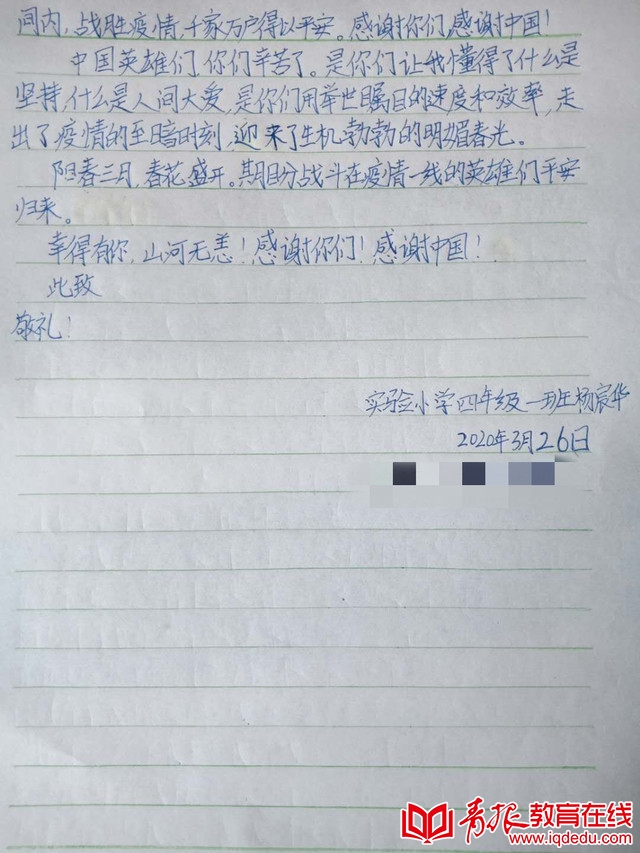 间内，战胜疫情，千家万户得以平安。感谢你们，感谢中国！
中国英雄们，你们辛苦了。是你们让我懂得了什么是
坚持，什么是人间大爱，是你们用举世瞩目的速度和效率，走
出了疫情的至暗时刻，迎来了生机勃勃的明媚春光。
阳春三月，春花盛开。期盼战斗在疫情一线的英雄们平安
归来。
幸得有你，山河无恙！感谢你们！感谢中国！
此致
敬礼！
实验小学四年级一班杨宸华
2020年3月26日
青报教育在线
www.iqdedu.com